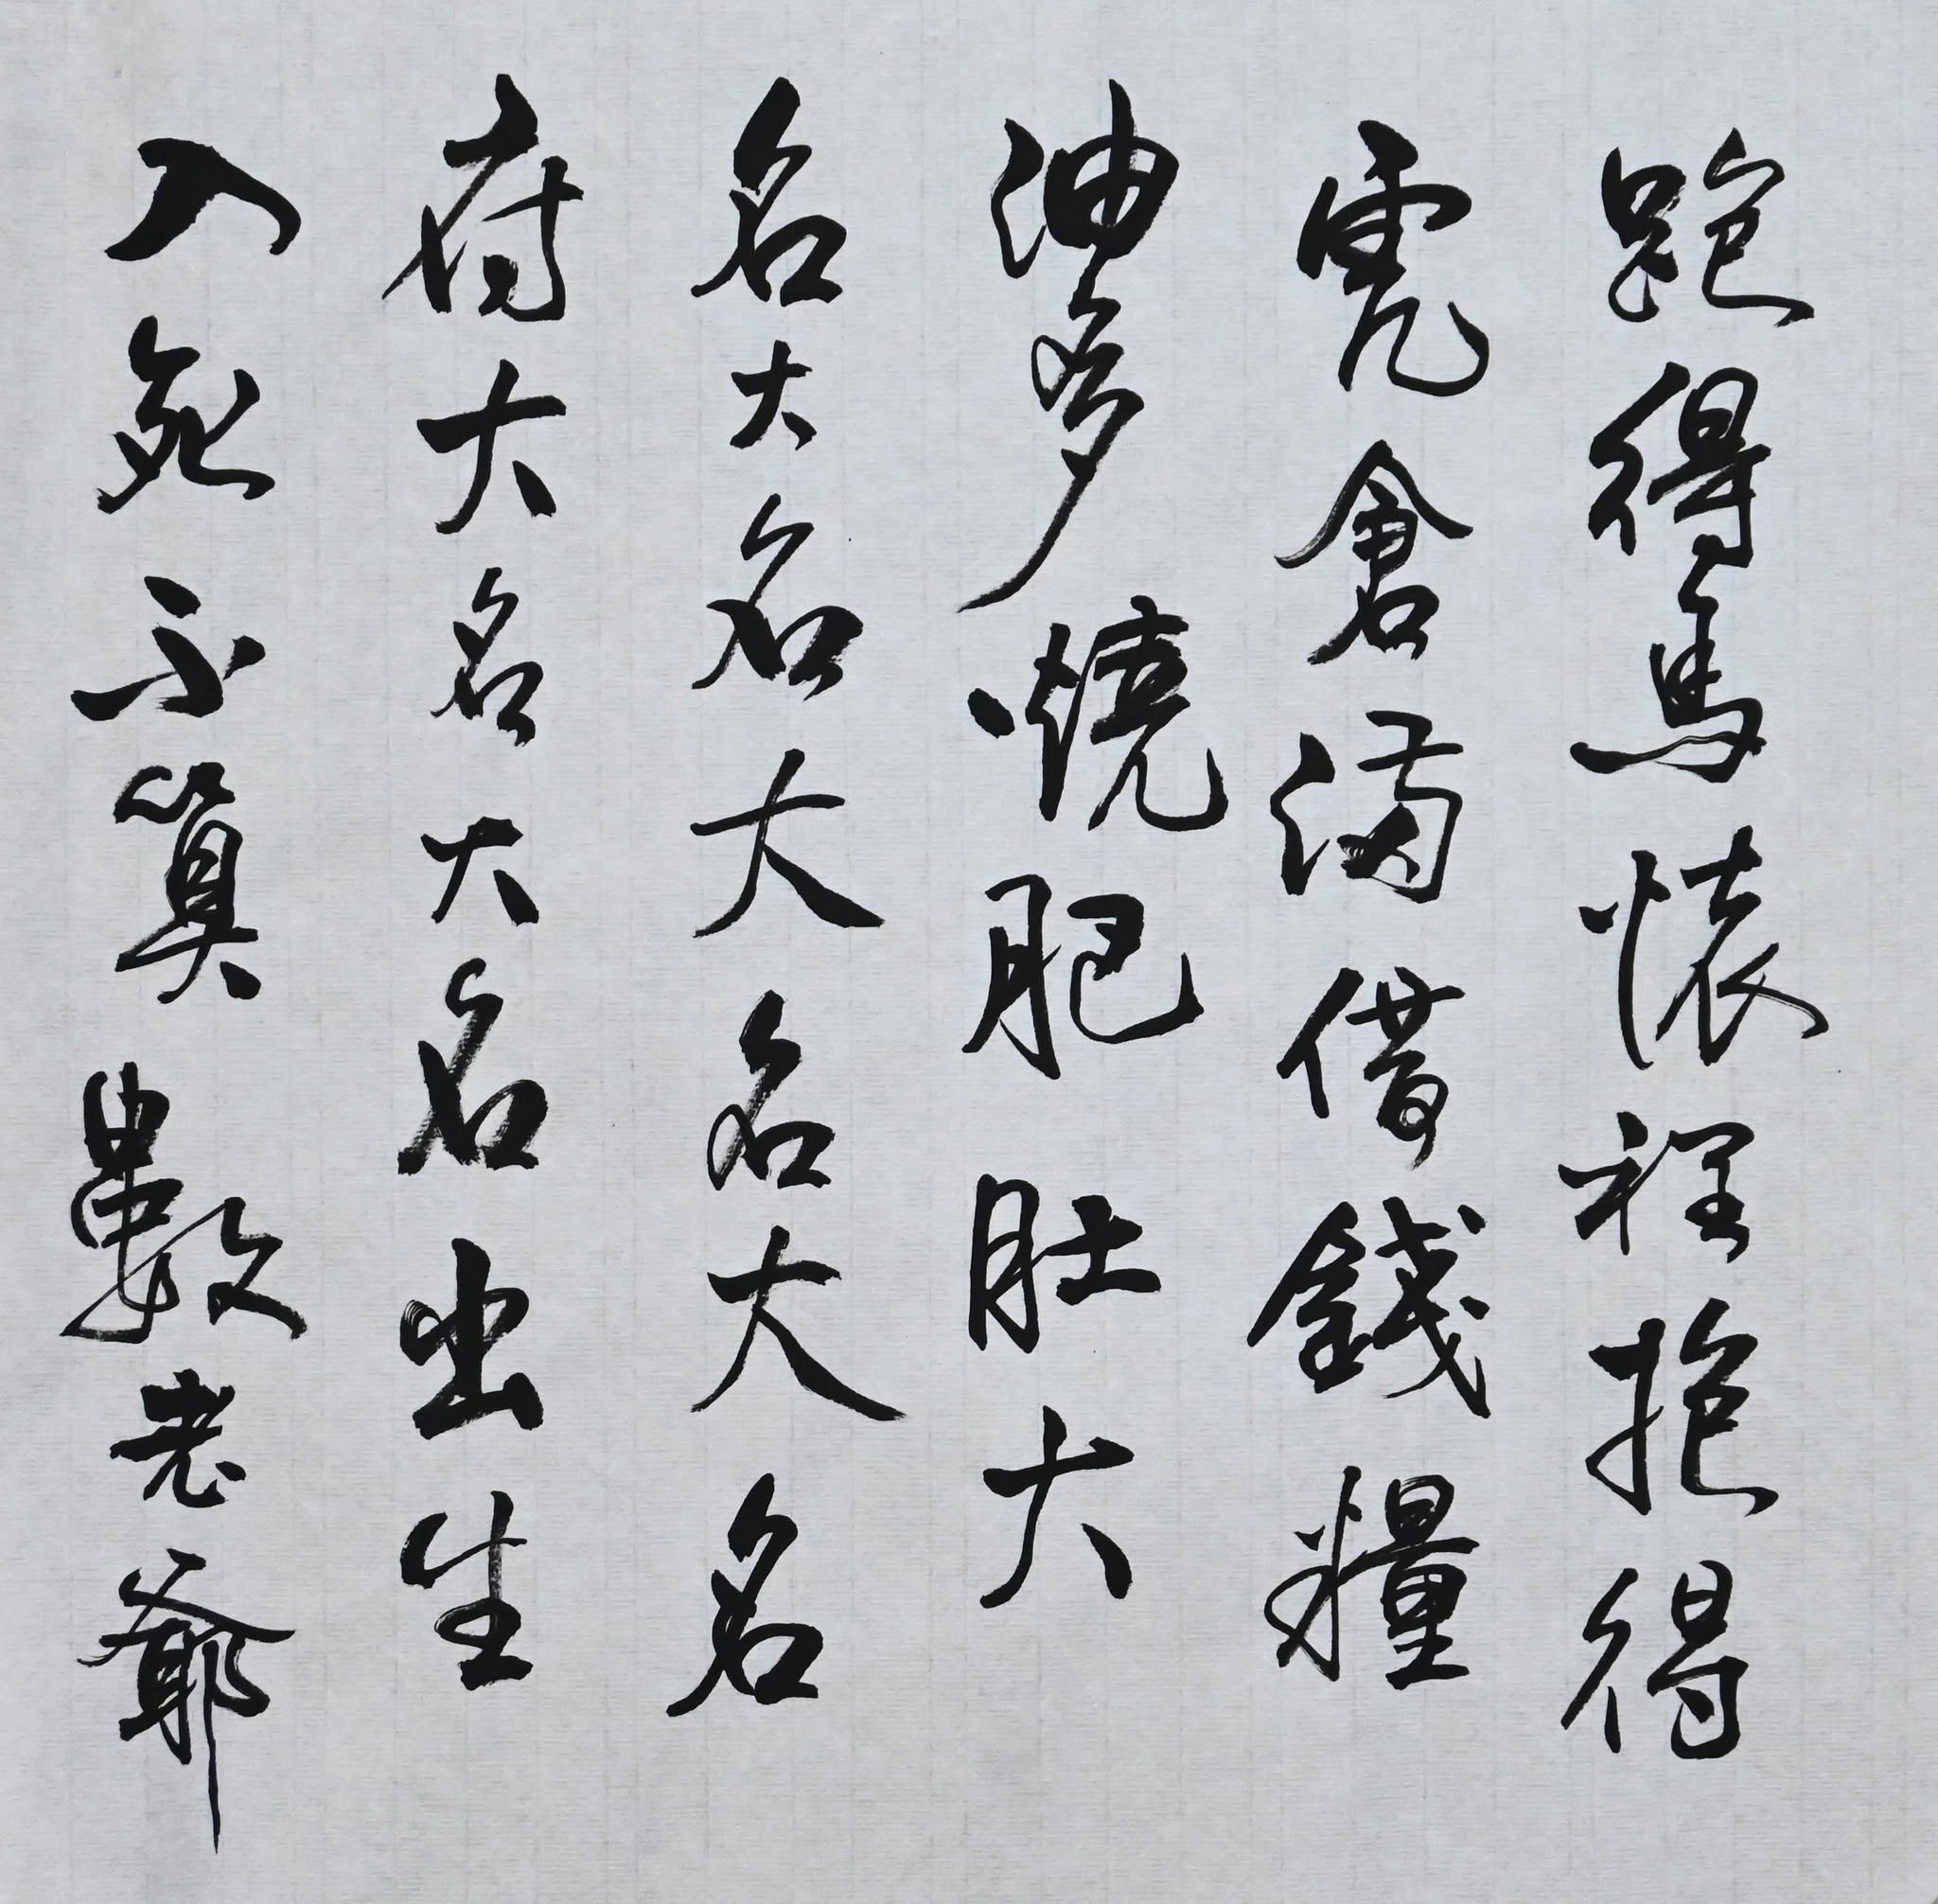 跑得馬懷裡抱得
虎倉滿借錢糧
油多燒肥肚大
名大名大名大名
府大名大名出生
入死不算數老爺